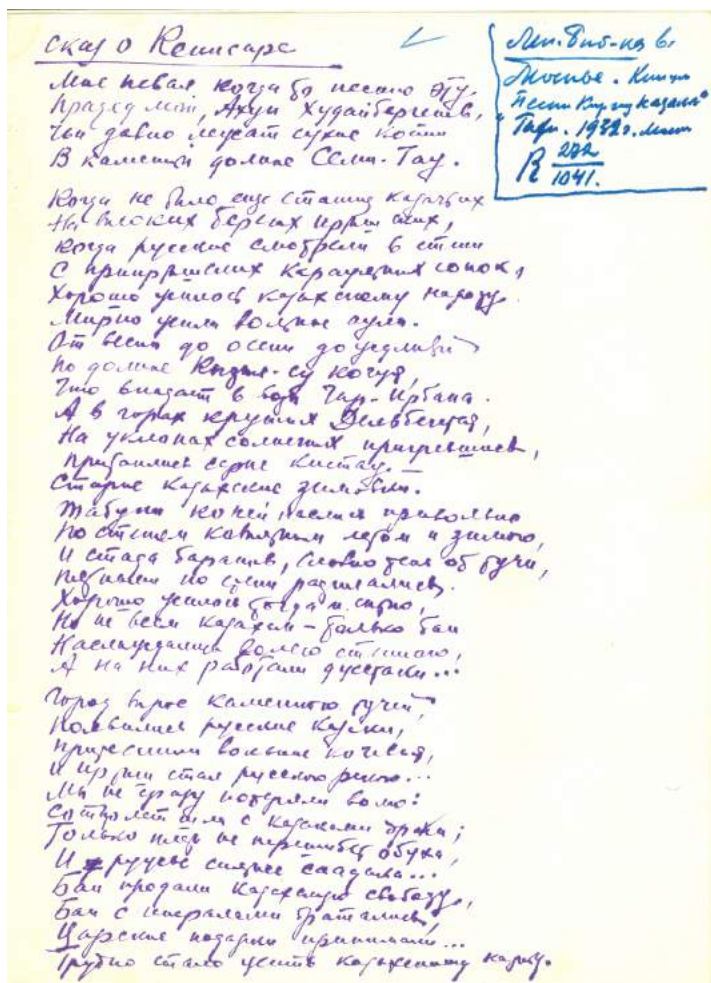 Сказ о Кенисаре
Лен. Биб-ка в.
Москве. Книга
"Песни Киргиз казаков"
1932 г.
R 272
1041.
Мне певал когда-то песню эту,
Прадед мой, Ахун Худайбергенев,
Чьи давно лежат сухие кости
В каменной долине Семи-Тау.
Когда не было еще станиц казачьих
На высоких берегах иртышских,
Когда русские смотрели в степи
С прииртышских караульных сопок,
Хорошо жилось казахскому народу.
Мирно жили вольные аулы.
От весны до осени дождливой
По долине Кызыл-су кочуя,
Что впадает в воды Чар-Гурбана.
А в горах крутых Дельбегетая,
На уклонах солнечных пригревшись,
Притаились серые кистау.—
Старые казахские зимовки.
Табуны коней паслись привольно
По степям ковыльным летом и зимою,
И стада баранов, словно тень от тучи,
по степи
Хорошо жилось тогда и сытно,
Но не всем казахам – только баи
Наслаждались волею степною,
А на них работали джетаки...
Город вырос каменною тучей,
Появились русские казаки,
Притеснили вольные кочевья,
И Иртыш стал русскою рекою...
Мы не сразу потеряли волю:
Сотню лет шла с казаками драка;
Только плеть не перешибет обуха,
И ружье сильнее
Баи продали казахскую свободу,
Баи с генералами братались,
Царские подарки принимали...
Трудно стало жить казахскому народу.